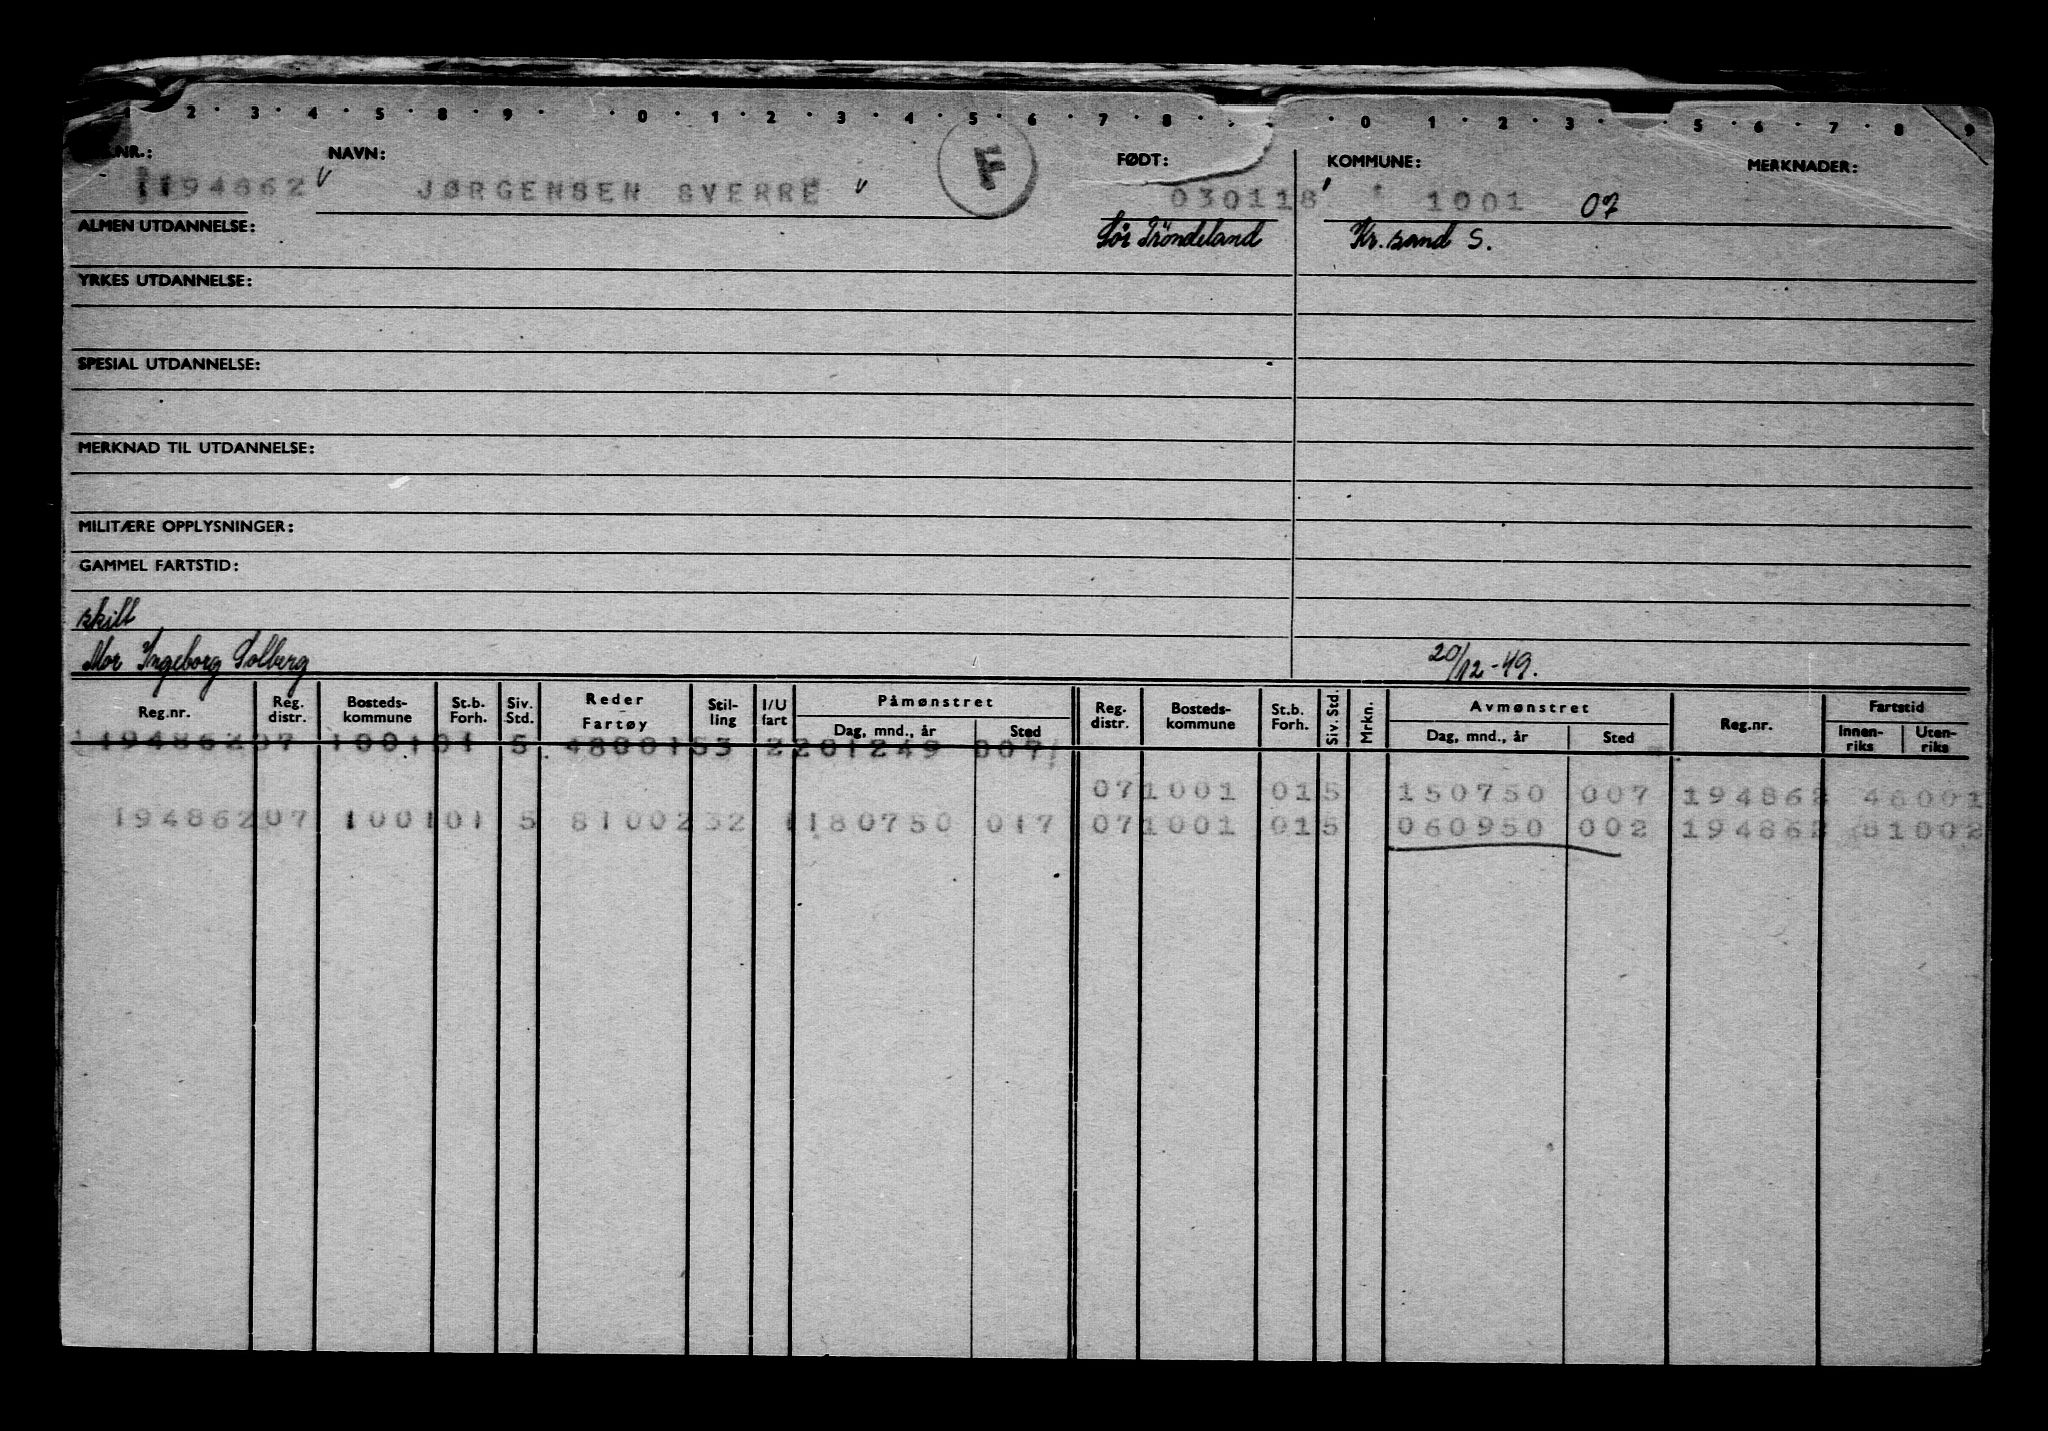 1 2 3 4 5 8 9 0 1 2 3 4 5 6 7 8 0 1 2 3 5 6 7 8 9
NR.: NAVN: FØDT: KOMMUNE: MERKNADER:
194862 JØRGENSEN SVERRE 030118 1001 07
ALMEN UTDANNELSE: Sør Tröndeland Kr.sand S.
YRKES UTDANNELSE:
SPESIAL UTDANNELSE:
MERKNAD TIL UTDANNELSE:
MILITÆRE OPPLYSNINGER:
GAMMEL FARTSTID:
skilt
Mor Ingeborg Solberg 20/12-49.
Reg.nr. Reg. distr. Bosteds-kommune St.b. Forh. Siv. Std. Reder Fartøy Stil-ling I/U fart Påmønstret Dag, mnd., år Sted Reg. distr. Bosteds-kommune St.b. Forh. Siv. Std. Mrkn. Avmønstret Dag, mnd., år Sted Reg.nr. Fartstid Innen-riks Uten-riks
194862 07 1001 01 5 53 2 201249 007
07 1001 01 5 150750 007 194862 48001
194862 07 1001 01 5 81002 32 1 180750 017 07 1001 01 5 060950 002 194862 81002